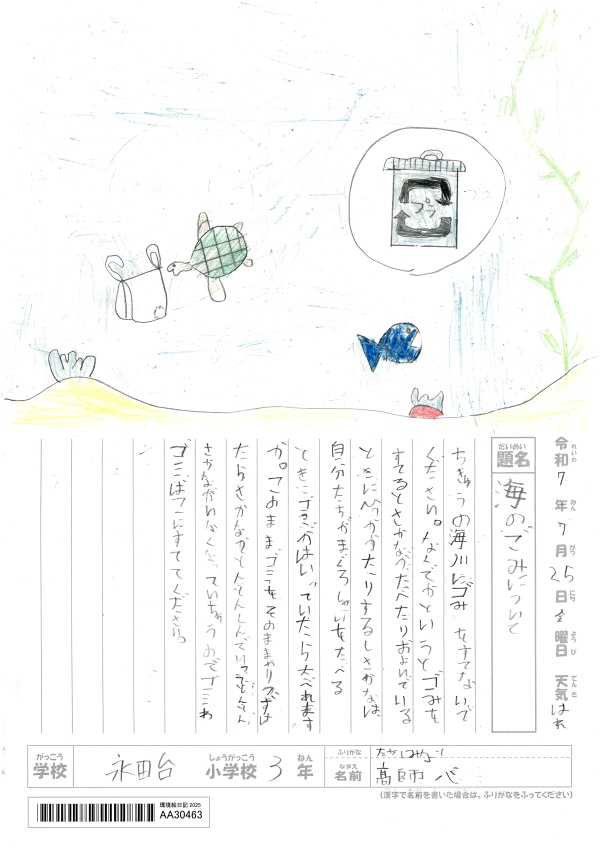 令和7年7月25日金曜日 天気はれ
題名 海のごみについて
ちきゅうの海川にゴみをすてないで
ください。なんでかというとゴみを
すてるとさかながたべたりおよいでいる
ときにひっかかったりするしさかなは、
自分たちがまぐろしゃけをたべる
ときにゴミがはいっていたらたべれます
か。このままゴミをそのままやりつずけ
たらさかながどんどんしんでいってどんどん
さかながいなくなっていちゃうのでゴミわ
ゴミばこにすててください。
学校 永田台 小学校 3年
ふりがな
名前 髙師 心
(漢字で名前を書いた場合は、ふりがなをふってください)
環境絵日記 2025
AA30463